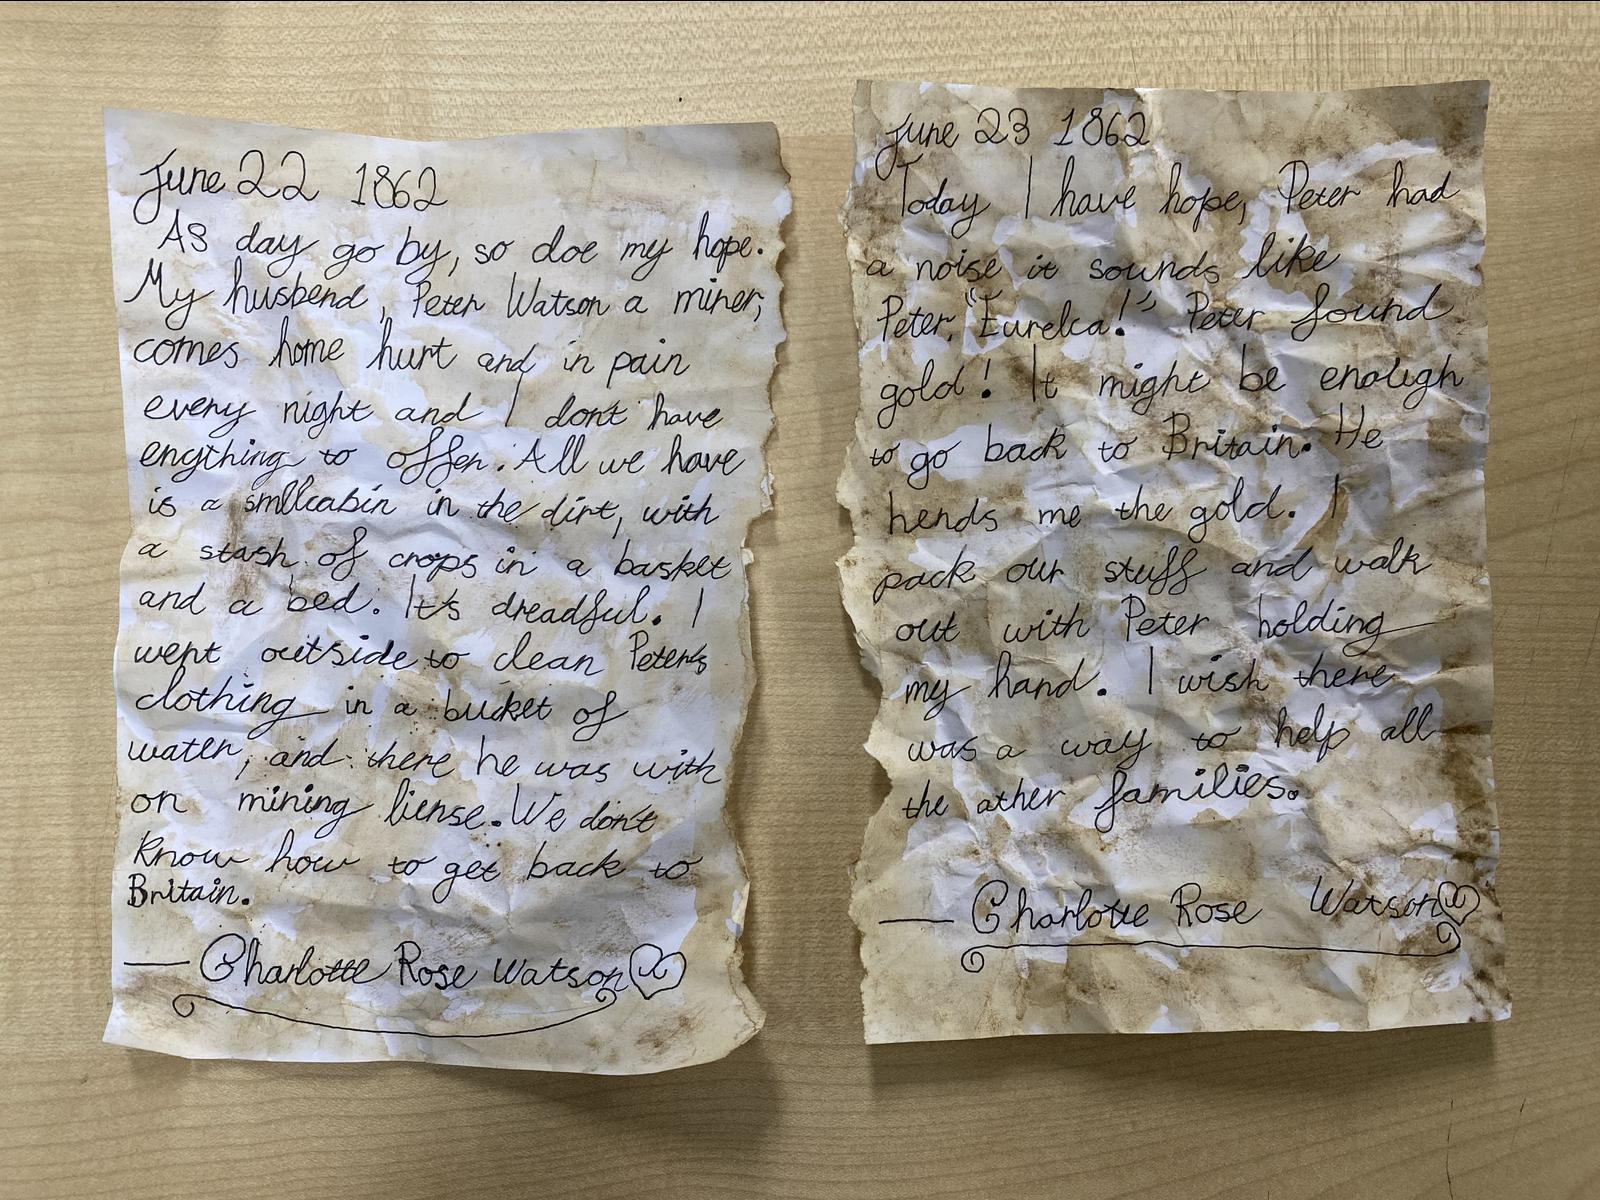 June 22 1862
As day go by, so doe my hope.
My husbend, Peter Watson a miner,
comes home hurt and in pain
every night and I don't have
enything to offer. All we have
is a smllcabin in the dirt, with
a stash of crops in a basket
and a bed. It's dreadful. I
went outside to clean Peter's
clothing in a bucket of
water, and there he was with
on mining liense. We don't
know how to get back to
Britain.
— Charlotte Rose Watson
June 23 1862
Today I have hope, Peter had
a noise it sounds like
Peter, "Eureka!" Peter found
gold! It might be enough
to go back to Britain. He
hends me the gold. I
pack our stuff and walk
out with Peter holding
my hand. I wish there
was a way to help all
the other families.
— Charlotte Rose Watson